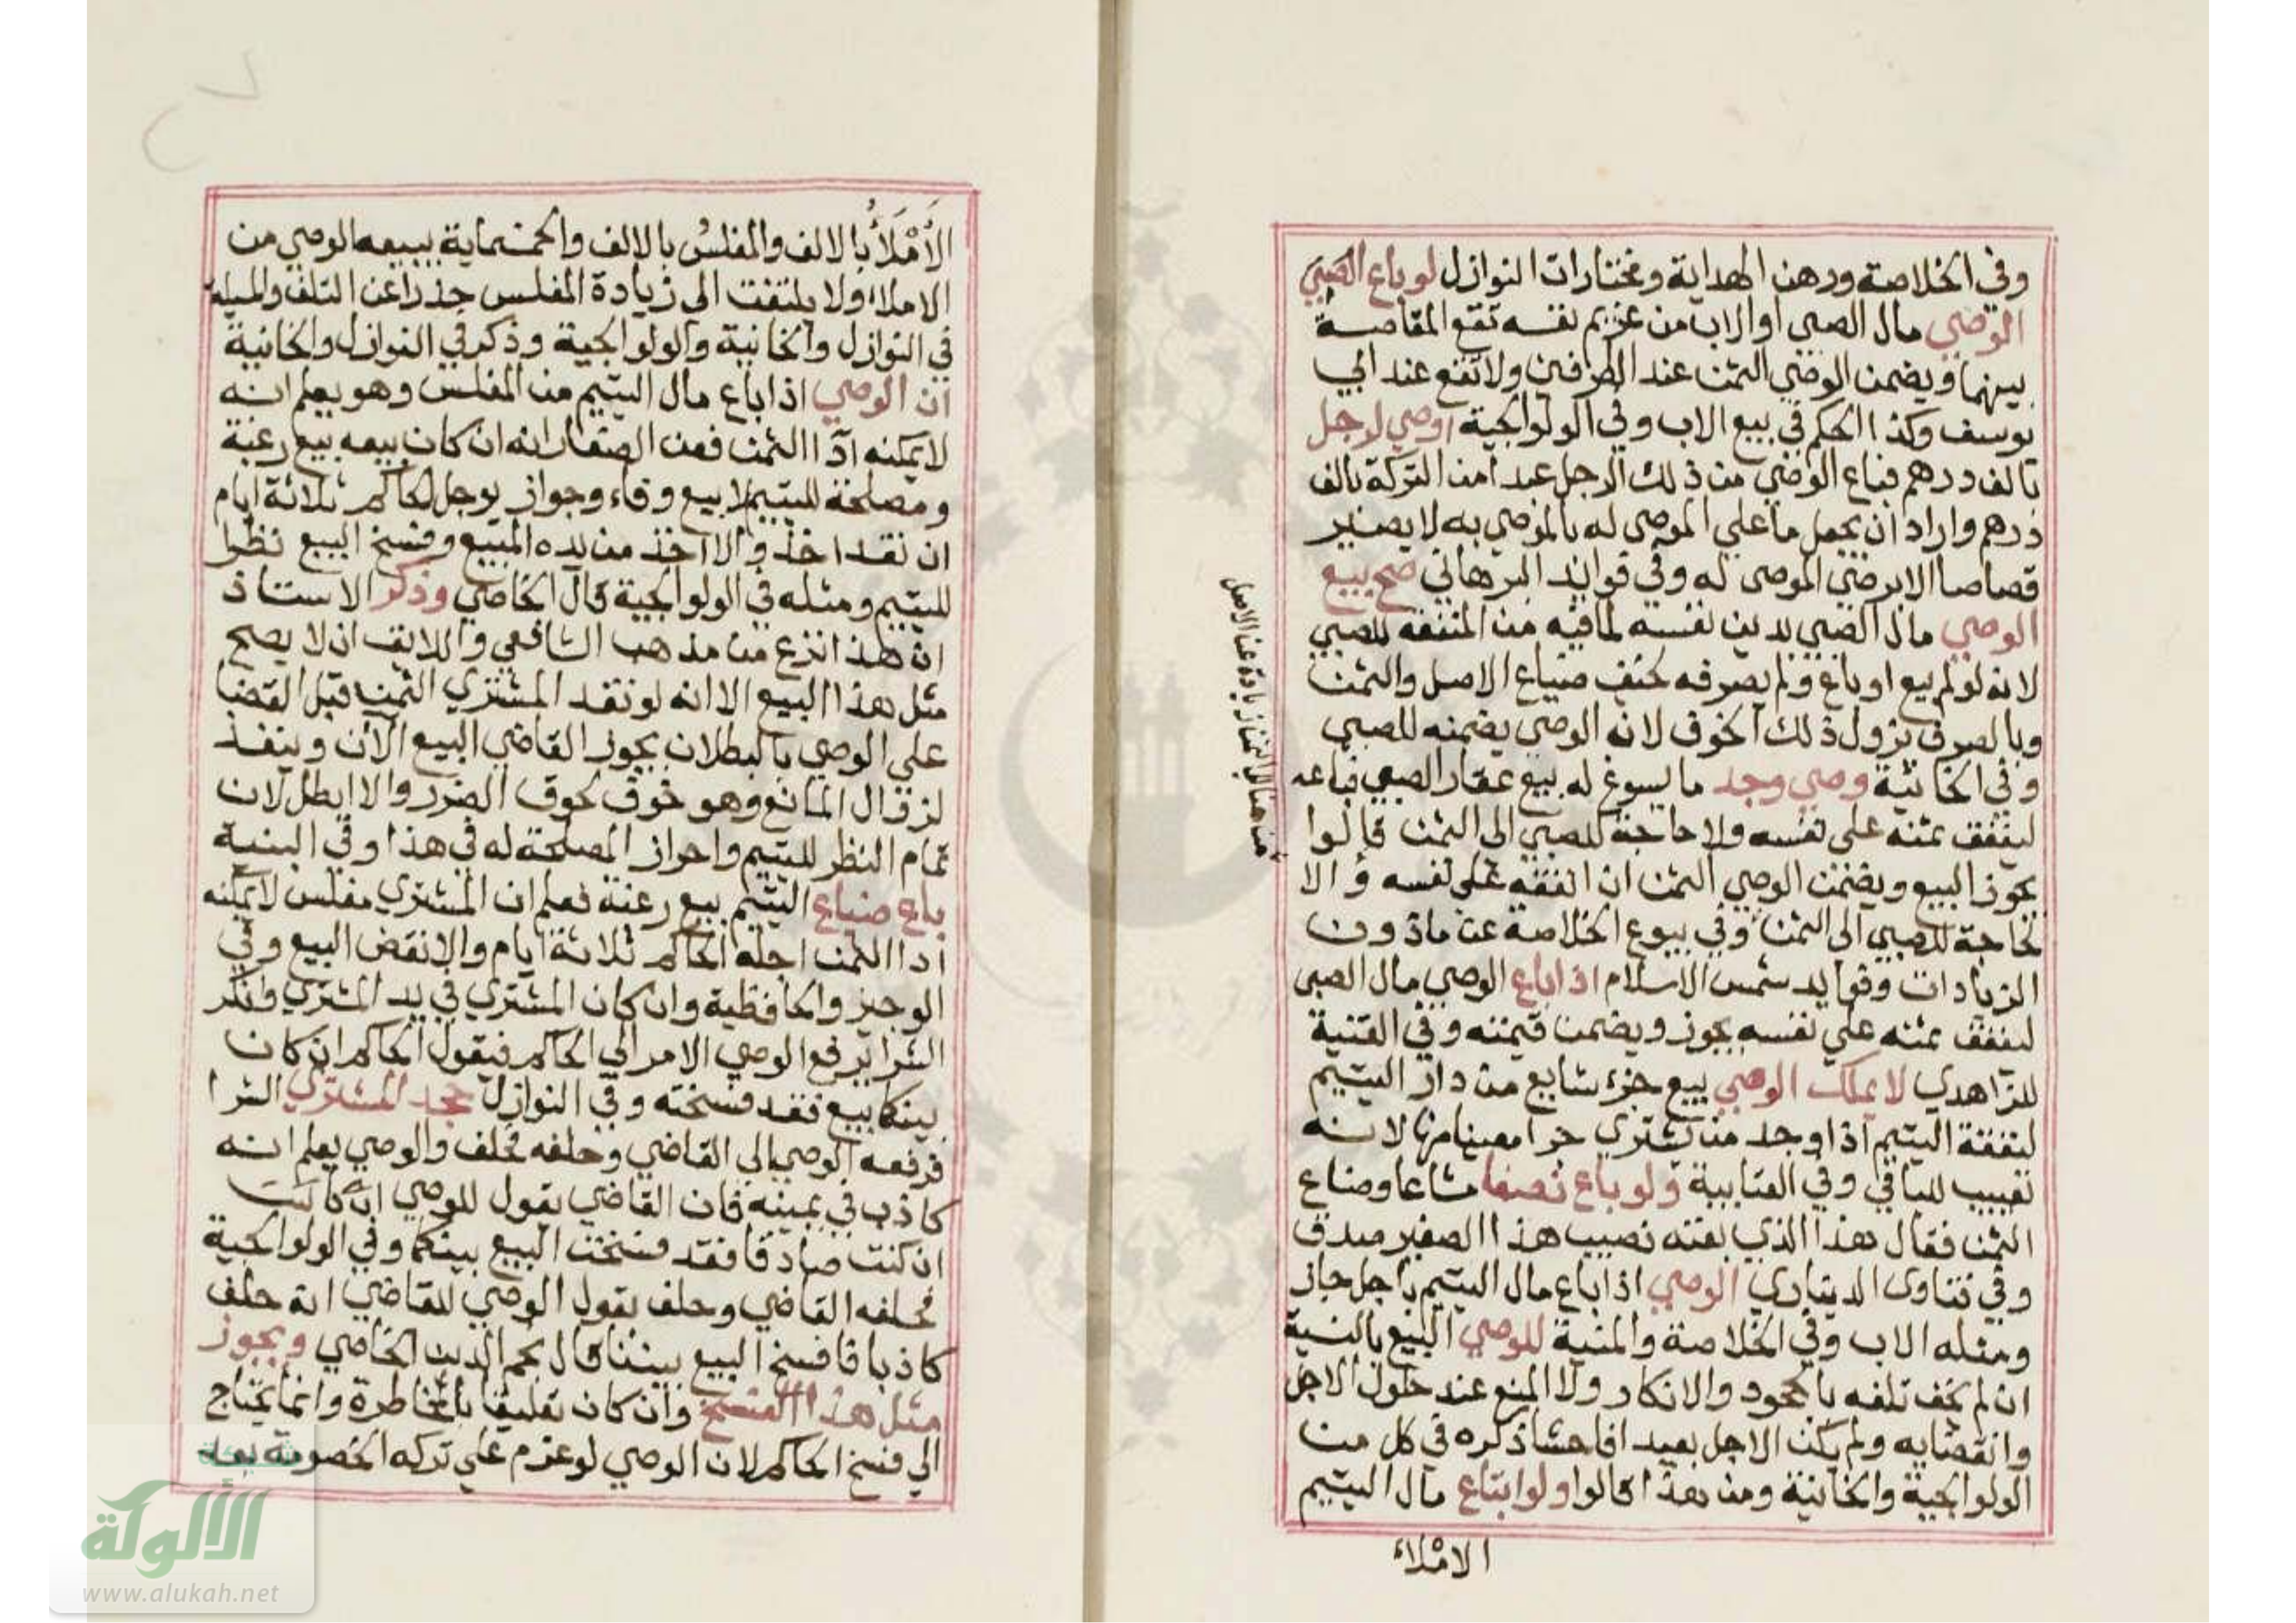 وفي الخلاصة ورهن الهداية ومختارات النوازل لو باع الصبي
الوصي مال الصبي او الاب من غريم نفسه تقع المقاصة
بينهما ويضمن الوصي الثمن عند الطرفين ولا تقع عند ابي
يوسف وكذا الحكم في بيع الاب وفي الولوالجية اوصي لرجل
بالف درهم فباع الوصي من ذلك الرجل عبدا من التركة بالف
درهم واراد ان يجعل ما علي الموصى له بالموصي به لا يصير
قصاصا الا برضي الموصى له وفي فوايد البرهاني صح بيع
الوصي مال الصبي بدين نفسه لما فيه من المنفعة للصبي
لانه لو لم يبع او باع ولم يصرفه خيف ضياع الاصل والثمن
وبالصرف يزول ذلك الخوف لانه الوصي يضمنه للصبي
وفي الخانية وصي وجد ما يسوغ له بيع عقار الصبي فباعه
لينفق ثمنه على نفسه ولا حاجة للصبي الى الثمن قالوا
يجوز البيع ويضمن الوصي الثمن ان انفقه على نفسه والا
لحاجة للصبي الى الثمن وفي بيوع الخلاصة عن ماذون
الزيادات وفوايد شمس الاسلام اذا باع الوصي مال الصبى
لينفق ثمنه علي نفسه يجوز ويضمن قيمته وفي القنية
للزاهدي لا يملك الوصي بيع جزء شايع من دار اليتيم
لنفقة اليتيم اذا وجد من يشتري جزا معينا منها لانه
تعييب للباقي وفي العتابية ولو باع نصفا مشاعا وضاع
الثمن فقال هذا الذي بعته نصيب هذا الصغير صدق
وفي فتاوى الديناري الوصي اذا باع مال اليتيم باجل جاز
ومثله الاب وفي الخلاصة والمنية للوصي البيع بالنسية
ان لم يخف تلفه بالجحود والانكار ولا المنع عند حلول الاجل
وانقضايه ولم يكن الاجل بعيدا فاحشا ذكره في كل من
الولوالجية والخانية ومن هذا قالوا ولو ابتاع مال اليتيم
الاملاء
من هنا الى زيادة عن الاصل
الأَمْلَأُ بالالف والمفلسُ بالالف والخمسماية يبيعه الوصي من
الاملاء ولا يلتفت الى زيادة المفلس حذرا عن التلف والمسئلة
في النوازل والخانية والولوالجية وذكر في النوازل والخانية
ان الوصي اذا باع مال اليتيم من المفلس وهو يعلم انه
لا يمكنه ادا الثمن فعن الصفار انه ان كان بيعه بيع رغبة
ومصلحة لليتيم لا بيع وفاء وجواز يوجل الحاكم ثلاثة ايام
ان نقد اخذ والا اخذ من يده المبيع وفسخ البيع نظرا
لليتيم ومثله في الولوالجية قال الخاصي وذكر الاستاذ
ان هذا نزع من مذهب الشافعي واللايق ان لا يصح
مثل هذا البيع الا انه لو نقد المشتري الثمن قبل القضا
علي الوصي بالبطلان يجوز القاضي البيع الآن وينفذ
لزوال المانع وهو خوف لحوق الضرر والا ابطل لان
تمام النظر لليتيم واحراز المصلحة له في هذا وفي المنية
باع ضياع اليتيم بيع رغبة فعلم ان المشتري مفلس لا يمكنه
ادا الثمن اجله الحاكم ثلاثة ايام والا نقض البيع وفي
الوجيز والحافظية وان كان المشتري في يد المشتري وانكر
الشرا يرفع الوصي الامر الي الحاكم فيقول الحاكم ان كان
بينكما بيع فقد فسخته وفي النوازل جحد المشتري الشرا
فرفعه الوصي الي القاضي وحلفه فحلف والوصي يعلم انه
كاذب في يمينه فان القاضي يقول للوصي ان كانت
ان كنت صادقا فقد فسخت البيع بينكما وفي الولوالجية
فحلفه القاضي وحلف يقول الوصي للقاضي انه حلف
كاذبا فافسخ البيع بيننا قال نجم الدين الخاصي ويجوز
مثل هذا الفسخ وان كان تعليقا بالمخاطرة وانما يحتاج
الي فسخ الحاكم لان الوصي لو عزم علي تركه الخصومة بعد
شبكة
الألوكة
www.alukah.net